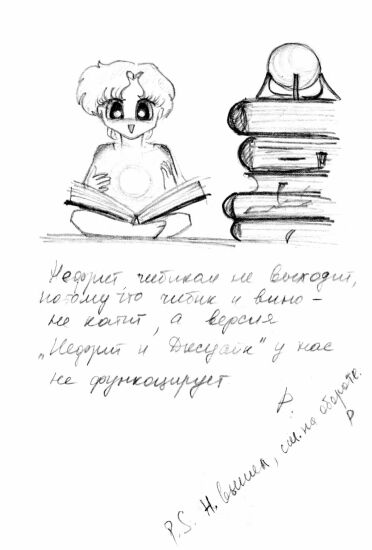 Нефрит чибиком не выходит,
потому что чибик и вино –
не катит, а версия
„Нефрит и Джедайт" у нас
не функцирует
P.S. Н. вышел, см. на обороте.